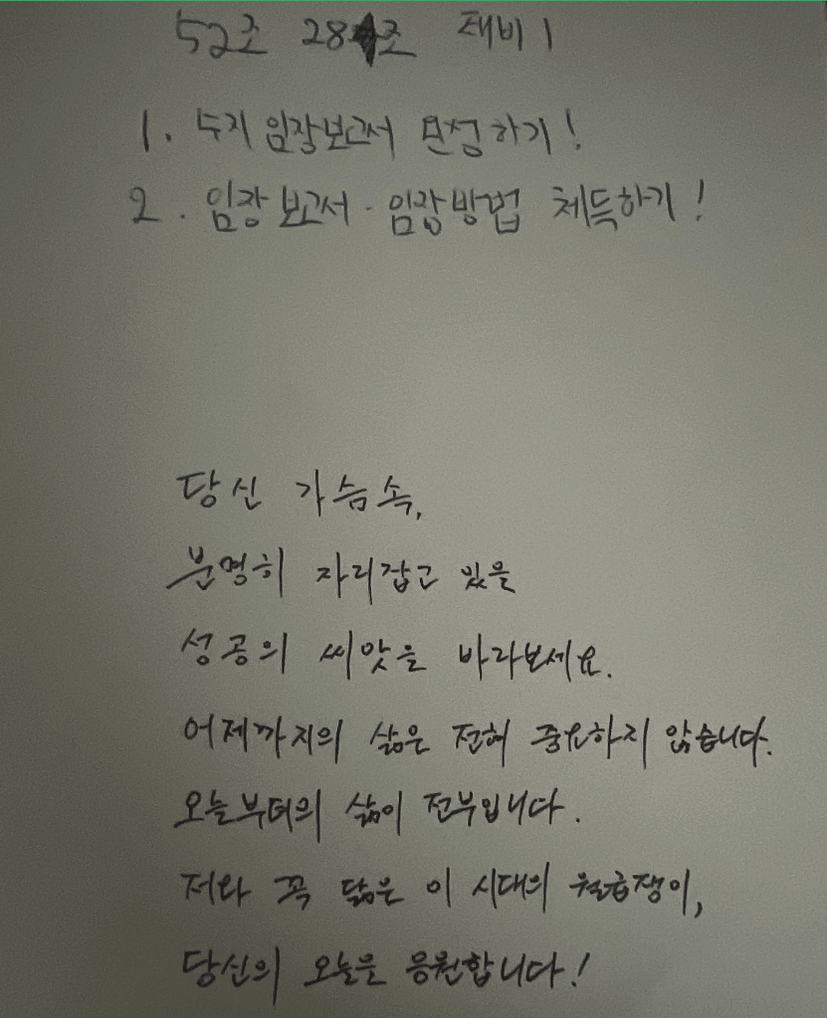 52조 28조 태비 1
1. 수지 임장보고서 완성하기!
2. 임장보고서·임장방법 체득하기!
당신 가슴속,
분명히 자리잡고 있을
성공의 씨앗을 바라보세요.
어제까지의 삶은 전혀 중요하지 않습니다.
오늘부터의 삶이 전부입니다.
저와 꼭 닮은 이 시대의 월급쟁이,
당신의 오늘을 응원합니다!